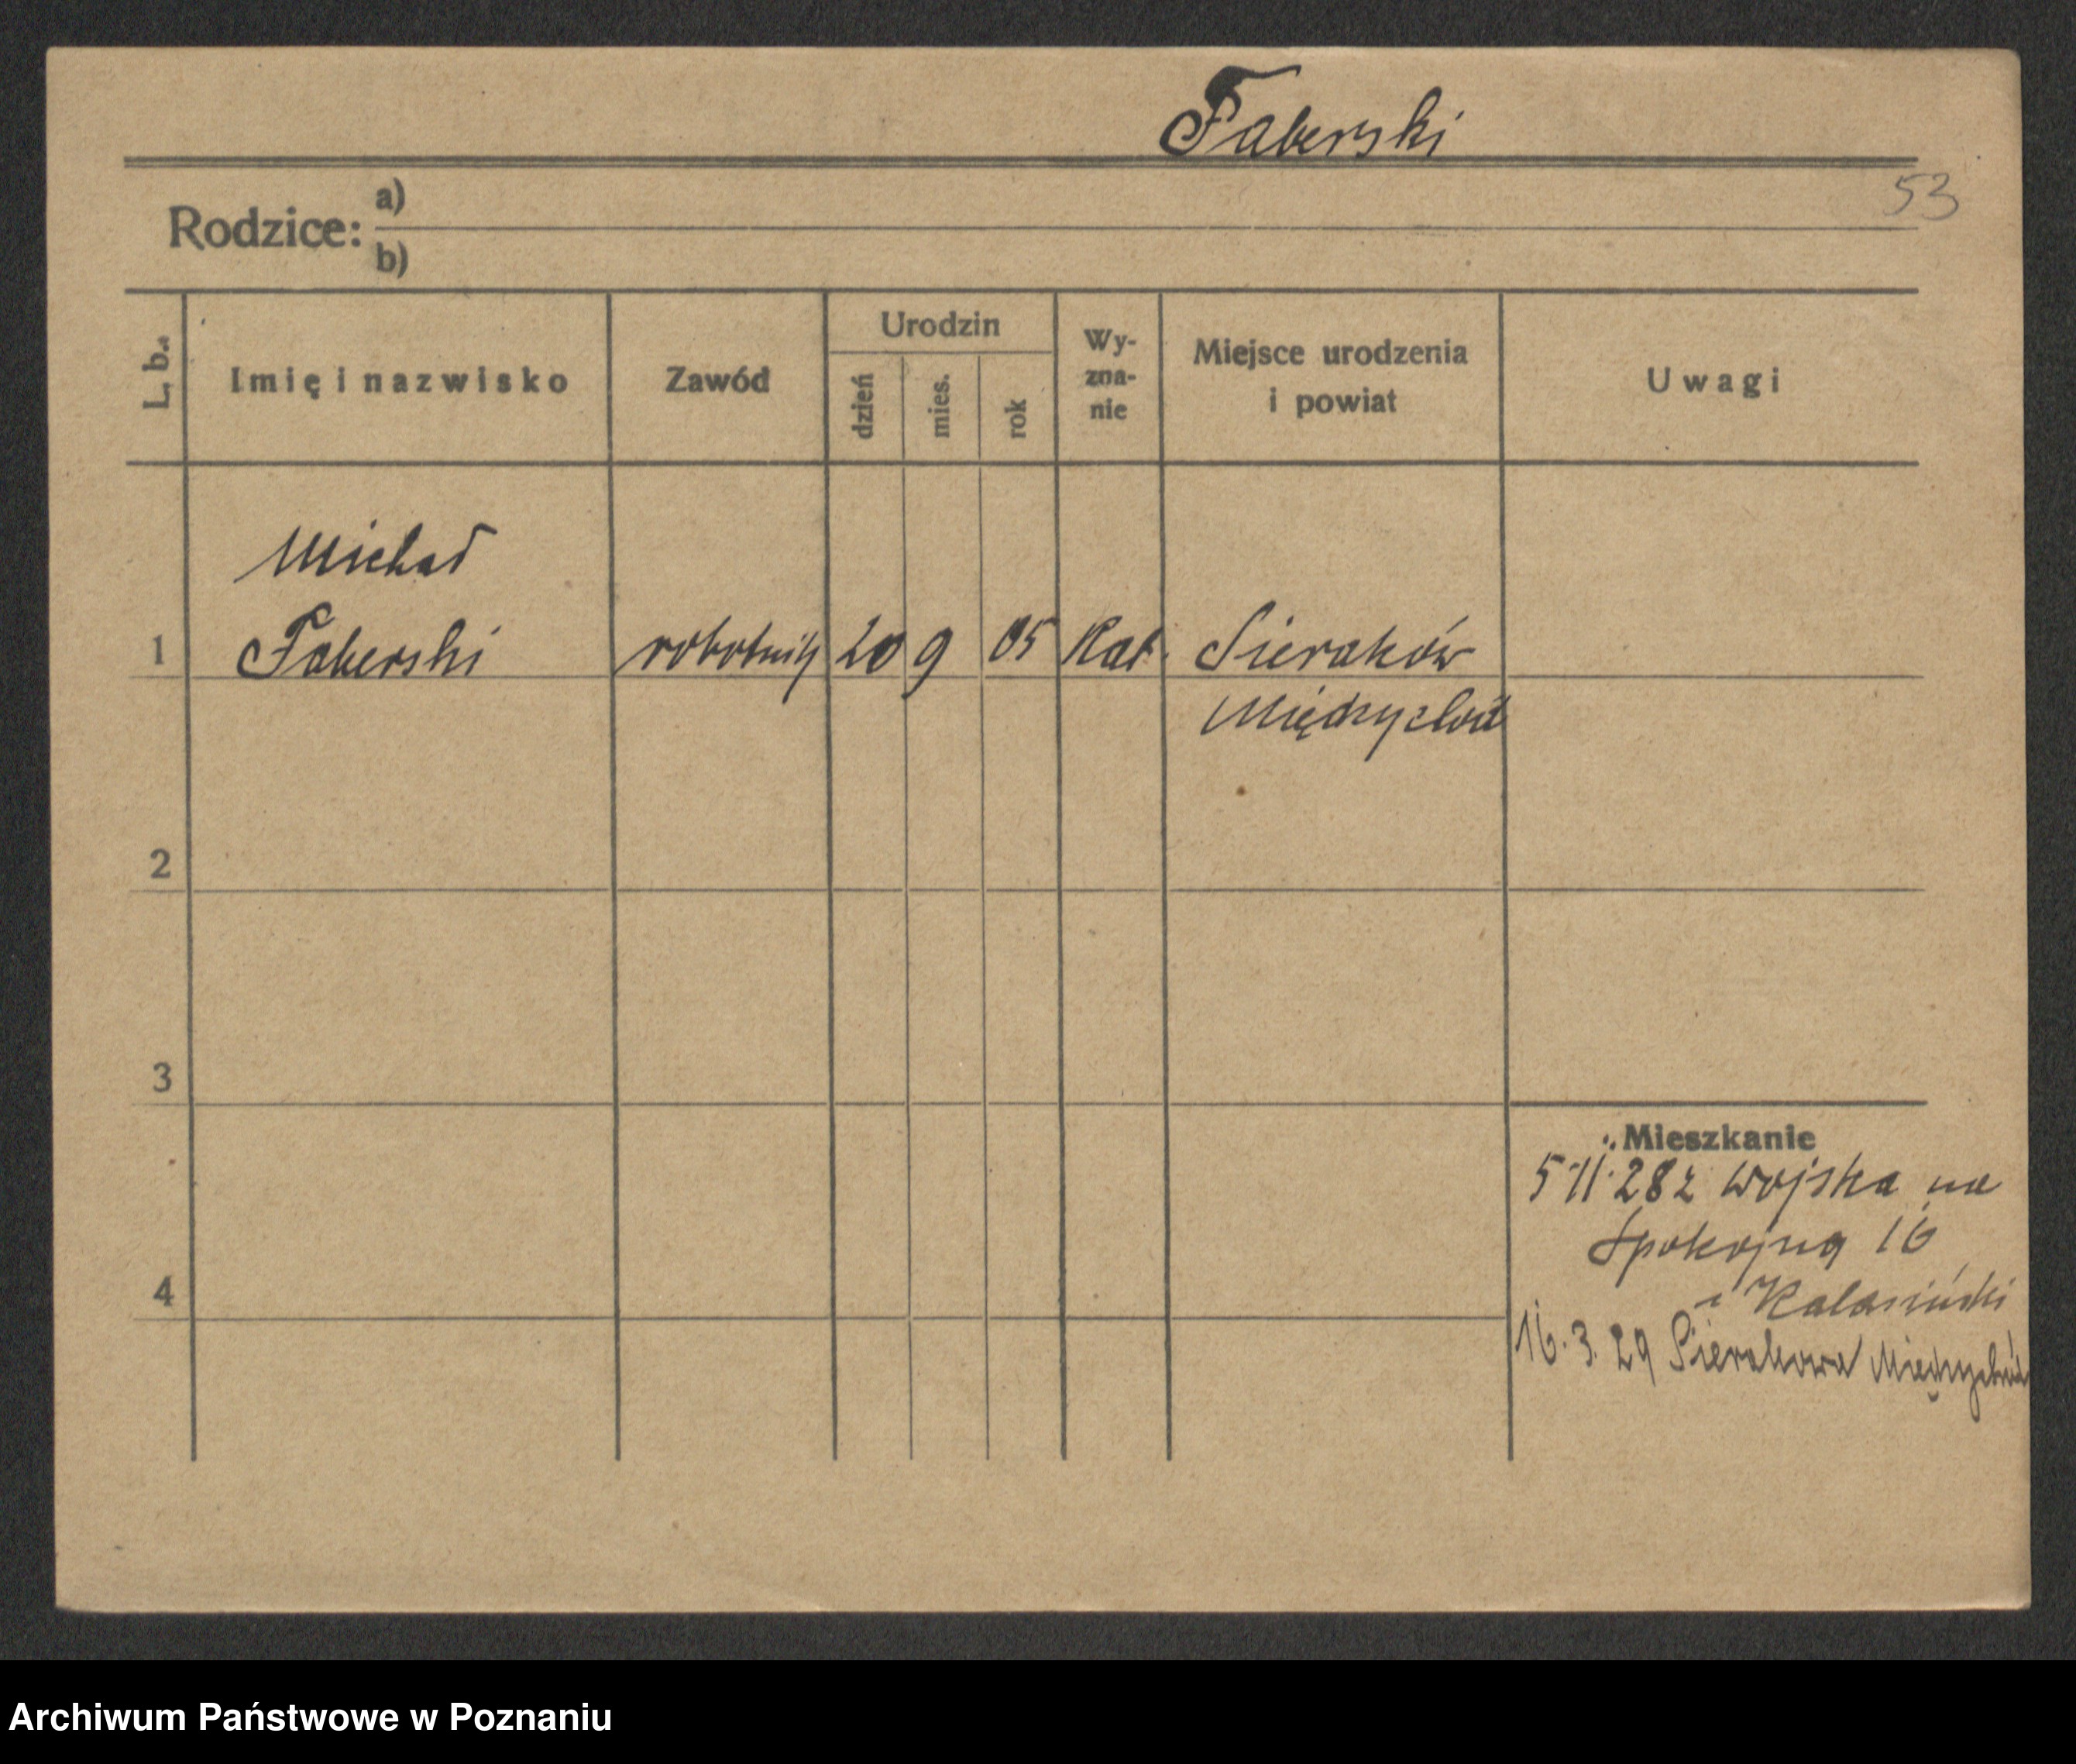 Faberski
53
Rodzice: a)
b)
L. b. Imię i nazwisko Zawód Urodzin dzień mies. rok Wy-zna-nie Miejsce urodzenia i powiat Uwagi
Michał
1 Faberski robotnik 20 9 05 Kat. Sieraków
Międzychód
2
3
Mieszkanie
5 11 28 z wojska na
Spokojną 16
4
i Kalasiński
16. 3. 29 Sierakowa Międzychód
Archiwum Państwowe w Poznaniu